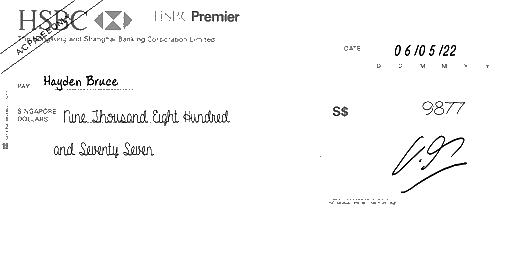 HSBC HSBC Premier
The Hongkong and Shanghai Banking Corporation Limited
A/C PAYEE ONLY
DATE 06/05/22
D D M M Y Y
PAY Hayden Bruce
SINGAPORE DOLLARS Nine Thousand Eight Hundred
and Seventy Seven
S$ 9877